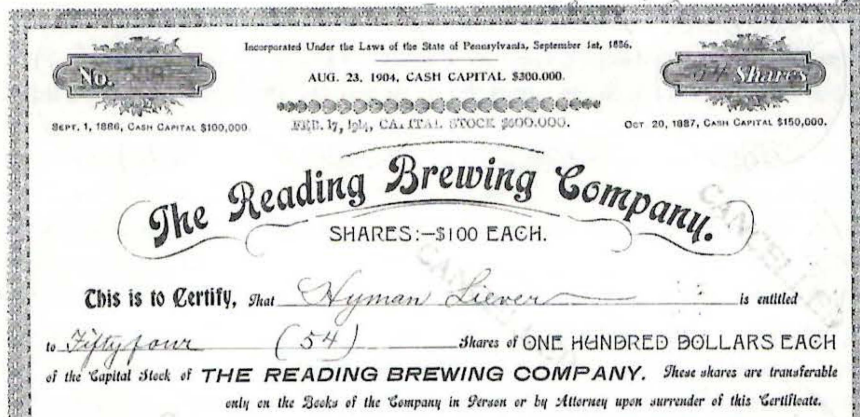 Incorporated Under the Laws of the State of Pennsylvania, September 1st, 1886.
No.
AUG. 23, 1904, CASH CAPITAL $300.000.
54 Shares
SEPT. 1, 1886, CASH CAPITAL $100,000.
FEB. 17, 1914, CAPITAL STOCK $600.000.
OCT 20, 1887, CASH CAPITAL $150,000.
The Reading Brewing Company.
SHARES:—$100 EACH.
This is to Certify, That Hyman Liever is entitled
to Fifty four (54) Shares of ONE HUNDRED DOLLARS EACH
of the Capital Stock of THE READING BREWING COMPANY. These shares are transferable
only on the Books of the Company in Person or by Attorney upon surrender of this Certificate.
CANCELLED
CANCELLED